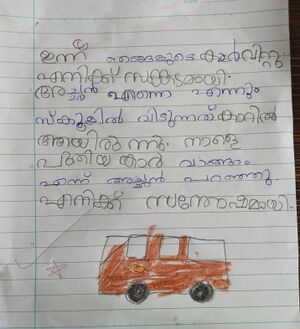 ഇന്ന് ഞങ്ങളുടെ കാർ വിറ്റു.
എനിക്ക് സങ്കടമായി.
അച്ഛൻ എന്നെ എന്നും
സ്കൂളിൽ വിടുന്നത് കാറിൽ
ആയിരുന്നു. നാളെ
പുതിയ കാർ വാങ്ങാം
എന്ന് അച്ഛൻ പറഞ്ഞു.
എനിക്ക് സന്തോഷമായി.